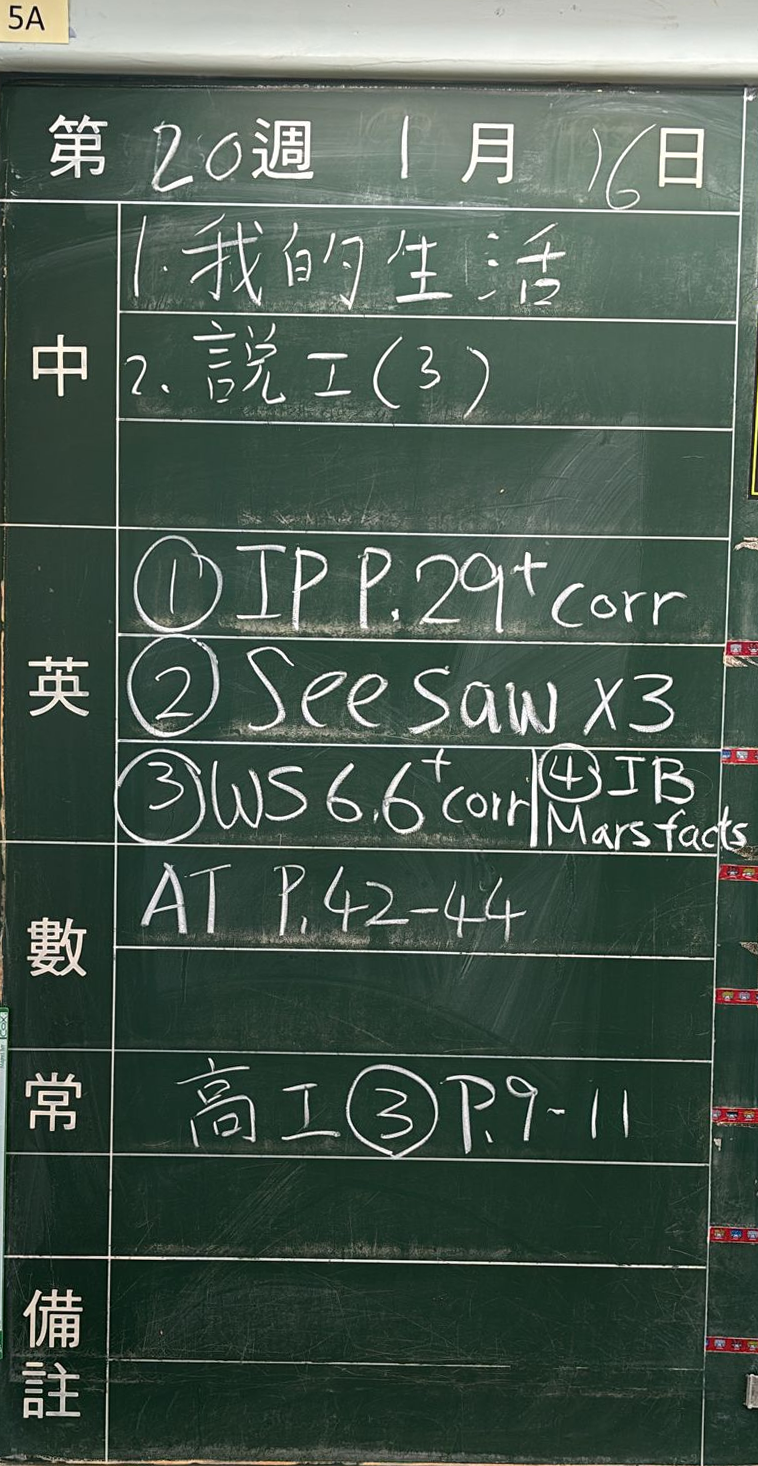 5A
第 20 週 1 月 16 日
中
1. 我的生活
2. 説工(3)
英
① IP P.29+corr
② Seesaw x3
③ WS 6.6+corr
④ IB
Mars facts
數
AT P.42-44
常
高工③P.9-11
備
註